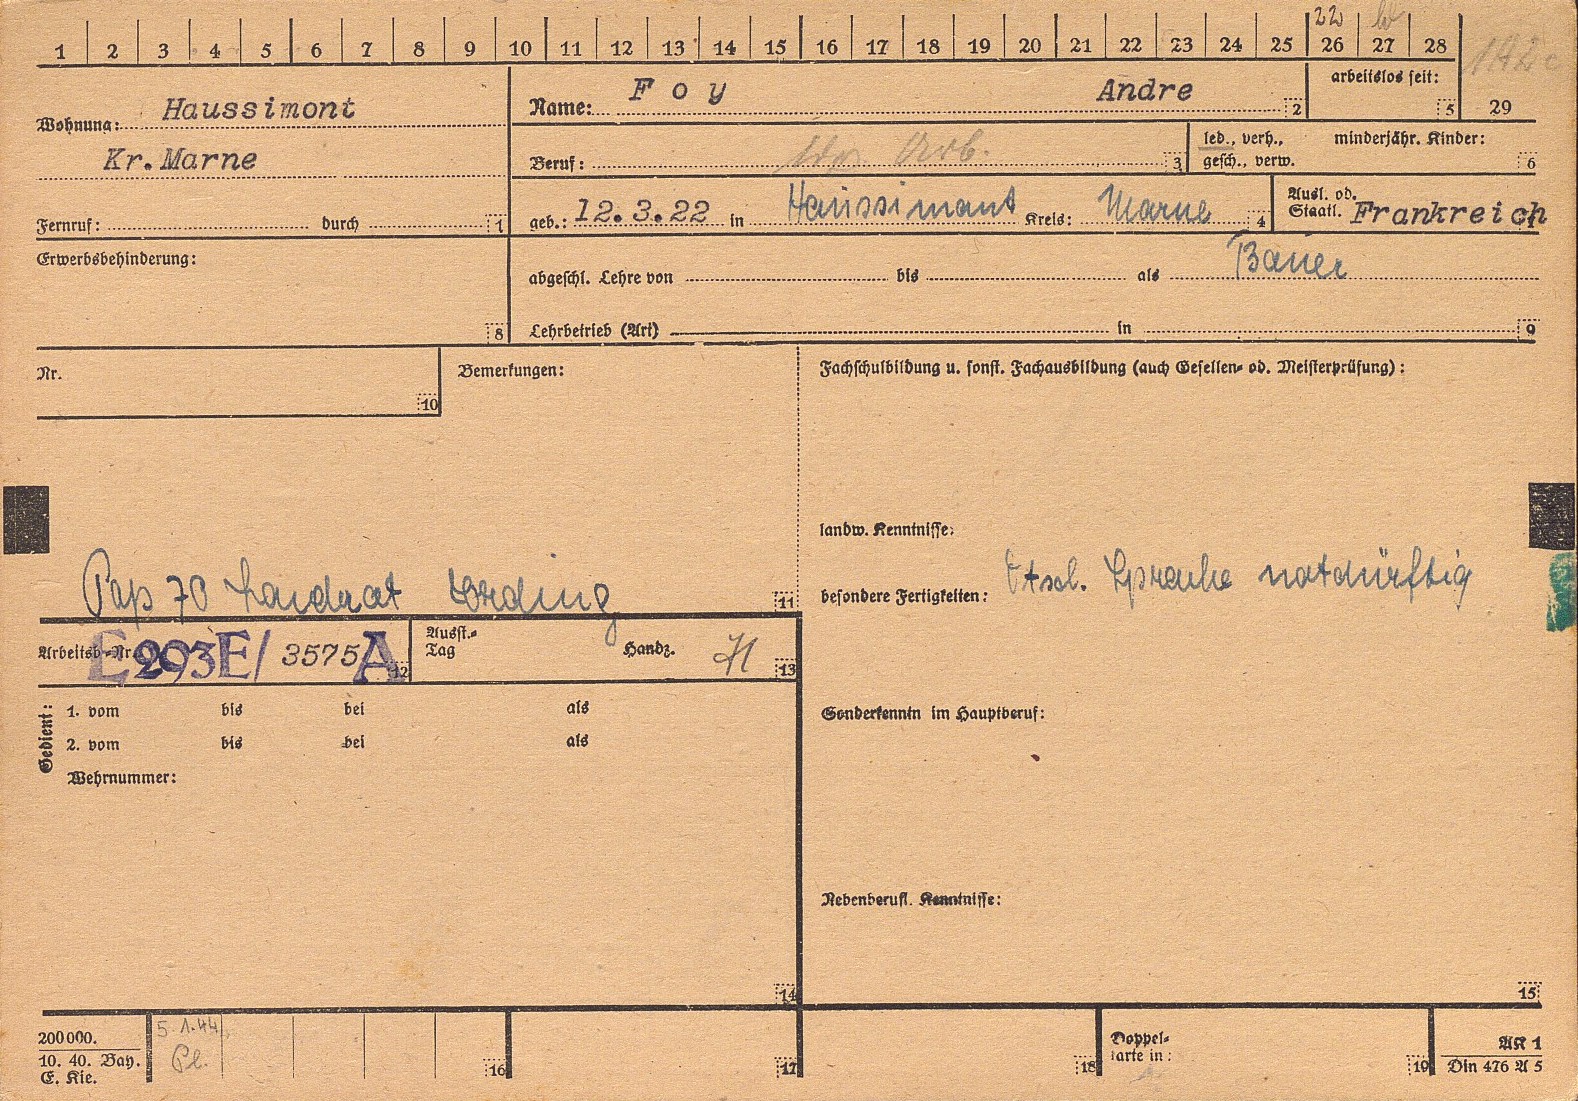 22
1 2 3 4 5 6 7 8 9 10 11 12 13 14 15 16 17 18 19 20 21 22 23 24 25 26 27 28 29
Wohnung: Haussimont
Kr. Marne
Fernruf: durch 1
Name: Foy Andre 2
arbeitslos seit: 5
Beruf: Arb. 3
led., verh., gesch., verw.
minderjähr. Kinder: 6
geb.: 12.3.22 in Haussimont Kreis: Marne 4
Ausl. od. Staatl. Frankreich
Erwerbsbehinderung: 8
abgeschl. Lehre von bis als Bauer
Lehrbetrieb (Art) in 9
Nr. 10
Bemerkungen:
Fachschulbildung u. sonst. Fachausbildung (auch Gesellen- od. Meisterprüfung):
landw. Kenntnisse:
Landrat Erding 11
besondere Fertigkeiten: Dtsch. Sprache notdürftig
Arbeitsb.-Nr. E293E/ 3575 A 12
Ausst.-Tag Handz. 13
Gedient: 1. vom bis bei als
2. vom bis bei als
Wehrnummer:
Sonderkenntn im Hauptberuf:
Nebenberufl. Kenntnisse:
14
15
200000.
10. 40. Bay.
E. Kie.
5.1.44
16
17
18
Doppel-
karte in: 19
AK 1
Din 476 A 5